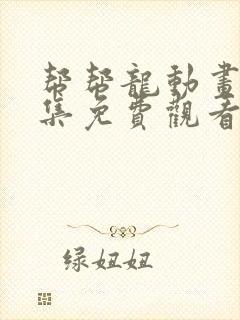 帮帮龍動畫
集免費觀看
绿妞妞